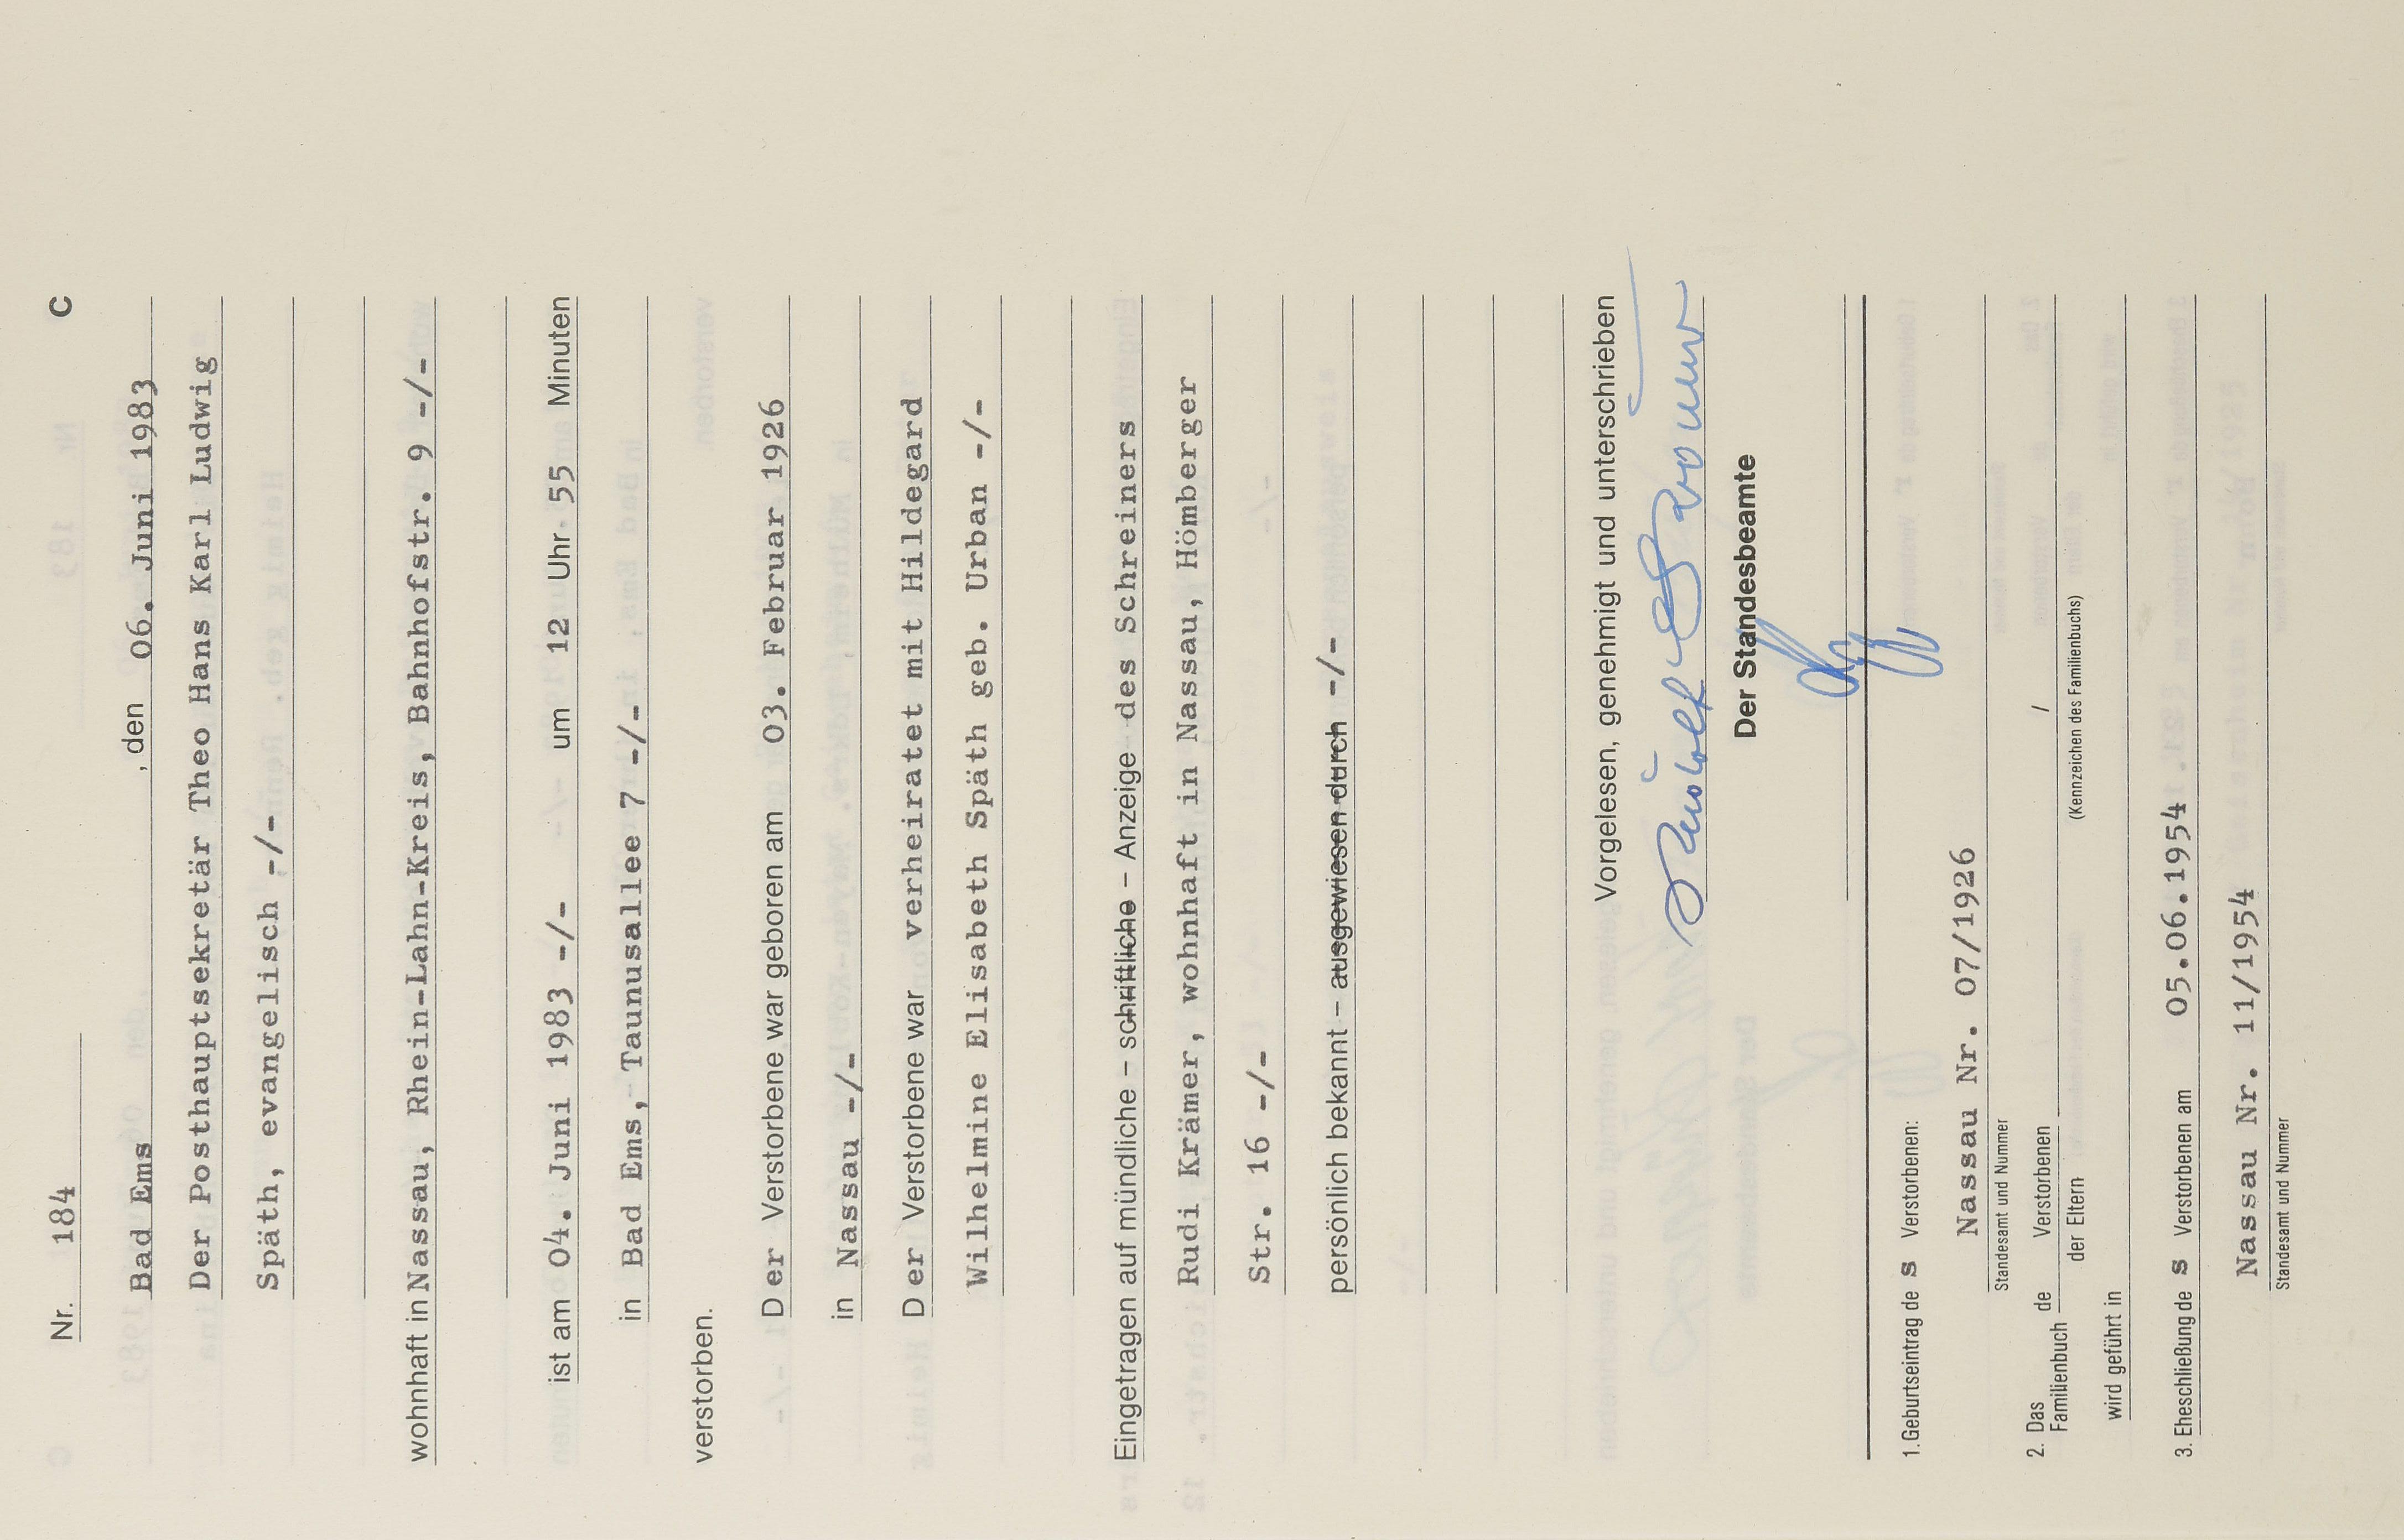 Nr. 184 C
Bad Ems , den 06. Juni 1983
Der Posthauptsekretär Theo Hans Karl Ludwig
Späth, evangelisch -/-
wohnhaft in Nassau, Rhein-Lahn-Kreis, Bahnhofstr. 9 -/-
ist am 04. Juni 1983 -/- um 12 Uhr 55 Minuten
in Bad Ems, Taunusallee 7 -/-
verstorben.
Der Verstorbene war geboren am 03. Februar 1926
in Nassau -/-
Der Verstorbene war verheiratet mit Hildegard
Wilhelmine Elisabeth Späth geb. Urban -/-
Eingetragen auf mündliche – schriftliche – Anzeige des Schreiners
Rudi Krämer, wohnhaft in Nassau, Hömberger
Str. 16 -/-
persönlich bekannt – ausgewiesen durch -/-
Vorgelesen, genehmigt und unterschrieben
Der Standesbeamte
1. Geburtseintrag des Verstorbenen:
Nassau Nr. 07/1926
Standesamt und Nummer
2. Das Familienbuch de Verstorbenen /
der Eltern (Kennzeichen des Familienbuchs)
wird geführt in
3. Eheschließung des Verstorbenen am 05.06.1954
Nassau Nr. 11/1954
Standesamt und Nummer